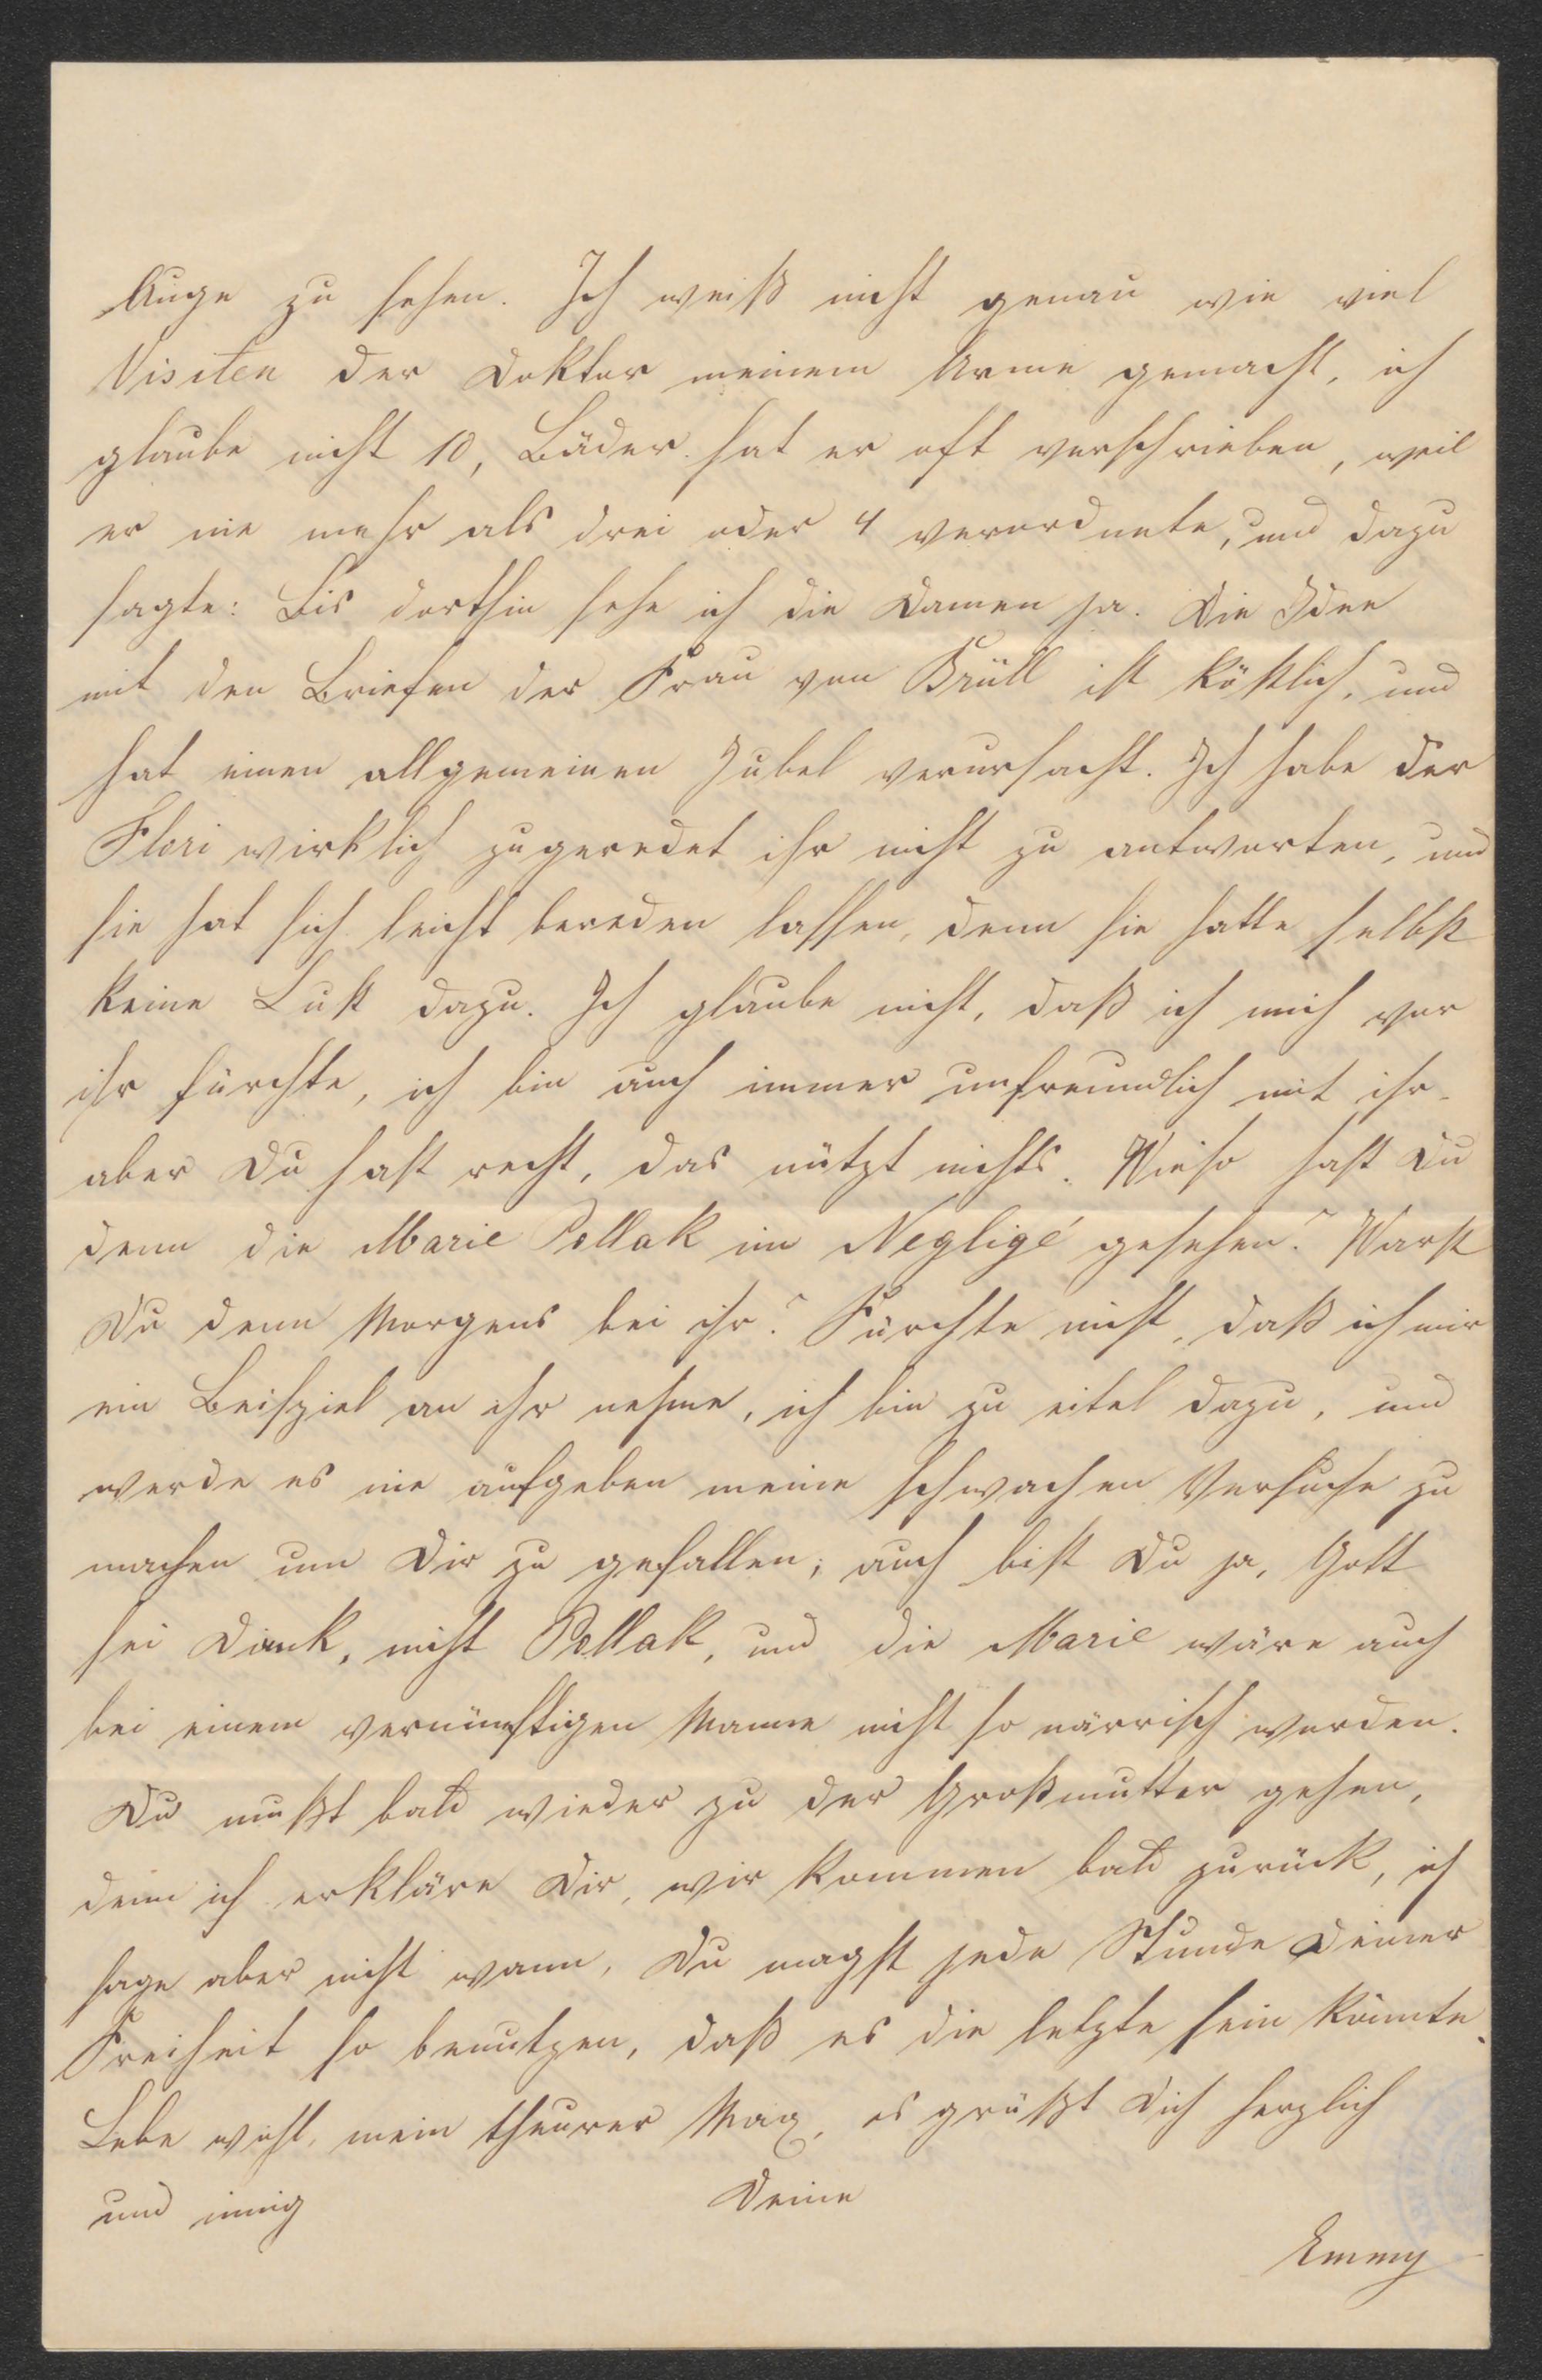 Auge zu sehen. Ich weiß nicht genau wie viel
Visiten der Doktor meinem Arme gemacht, ich
glaube nicht 10, Bäder hat er oft verschrieben, weil
er nie mehr als drei oder 4 verordnete, und dazu
sagte: Bis dorthin sehe ich die Damen ja. Die Idee
mit den Briefen der Frau von Brüll ist köstlich, und
hat einen allgemeinen Jubel verursacht. Ich habe der
Flori wirklich zugeredet ihr nicht zu antworten, und
sie hat sich leicht bereden lassen, denn sie hatte selbst
keine Lust dazu. Ich glaube nicht, daß ich mich vor
ihr fürchte, ich bin auch immer unfreundlich mit ihr,
aber Du hast recht, das nützt nichts. Wieso hast Du
denn die Marie Pollak im Negligé gesehen? Warst
Du denn Morgens bei ihr? Fürchte nicht, daß ich mir
ein Beispiel an ihr nehme, ich bin zu eitel dazu, und
werde es nie aufgeben meine schwachen Versuche zu
machen um Dir zu gefallen; auch bist Du ja, Gott
sei Dank, nicht Pollak, und die Marie wäre auch
bei einem vernünftigen Manne nicht so närrisch worden.
Du mußt bald wieder zu der Großmutter gehen,
denn ich erkläre Dir, wir kommen bald zurück, ich
sage aber nicht wann, Du magst jede Stunde Deiner
Freiheit so benutzen, daß es die letzte sein könnte.
Lebe wohl, mein theurer Max, es grüßt Dich herzlich
und innig Deine
Emmy